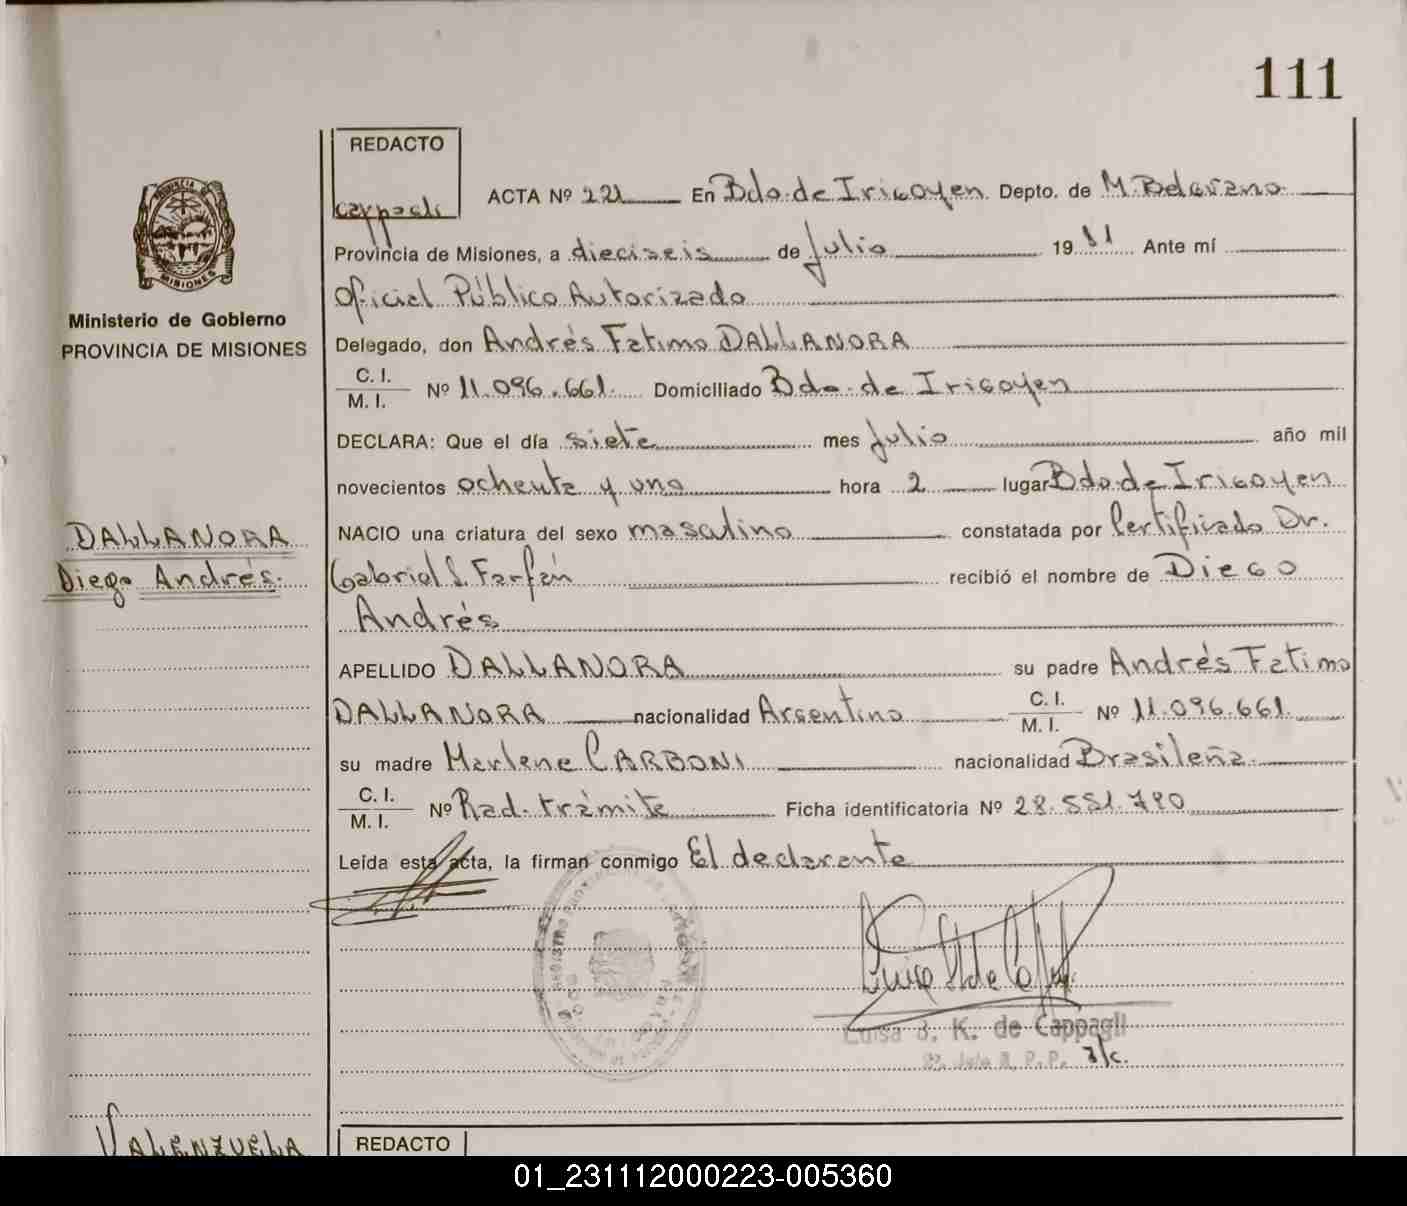 111
REDACTO
Cappagli
ACTA Nº 221 En Bdo. de Irigoyen Depto. de M. Belgrano
Provincia de Misiones, a dieciseis de Julio 1981 Ante mí
Oficial Público Autorizado
Delegado, don Andrés Fatimo DALLANORA
C. I.
M. I. Nº 11.096.661. Domiciliado Bdo. de Irigoyen
DECLARA: Que el día siete mes Julio año mil
novecientos ochenta y uno hora 2 lugar Bdo. de Irigoyen
NACIO una criatura del sexo masculino constatada por Certificado Dr.
Gabriel S. Farfán recibió el nombre de Diego
Andrés
APELLIDO DALLANORA su padre Andrés Fatimo
DALLANORA nacionalidad Argentino C. I.
M. I. Nº 11.096.661.
su madre Marlene CARBONI nacionalidad Brasileña
C. I.
M. I. Nº Rad. trámite Ficha identificatoria Nº 28.551.780
Leída esta acta, la firman conmigo El declarante
Luisa B. K. de Cappagli
a/c.
PROVINCIA DE
MISIONES
Ministerio de Gobierno
PROVINCIA DE MISIONES
DALLANORA
Diego Andrés.
VALENZUELA
REDACTO
01_231112000223-005360